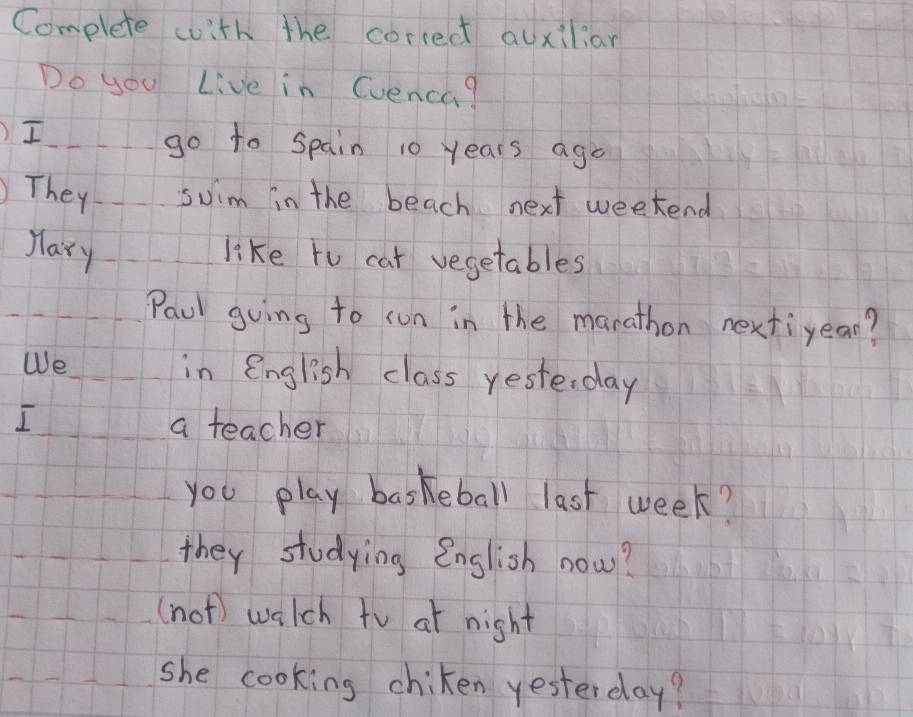 Complete with the correct auxiliar
Do you Live in Cuenca?
) I ---- go to Spain 10 years ago
) They ---- swim in the beach next weekend
Mary ---- like to eat vegetables
---- Paul going to run in the marathon next year?
We ---- in English class yesterday
I ---- a teacher
---- you play baskeball last week?
---- they studying English now?
---- (not) watch tv at night
---- she cooking chiken yesterday?